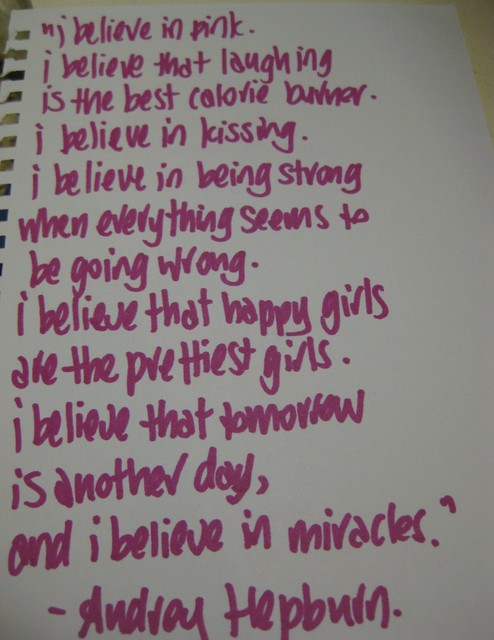 "i believe in pink.
i believe that laughing
is the best calorie burner.
i believe in kissing.
i believe in being strong
when everything seems to
be going wrong.
i believe that happy girls
are the prettiest girls.
i believe that tomorrow
is another day,
and i believe in miracles."
- Audrey Hepburn.